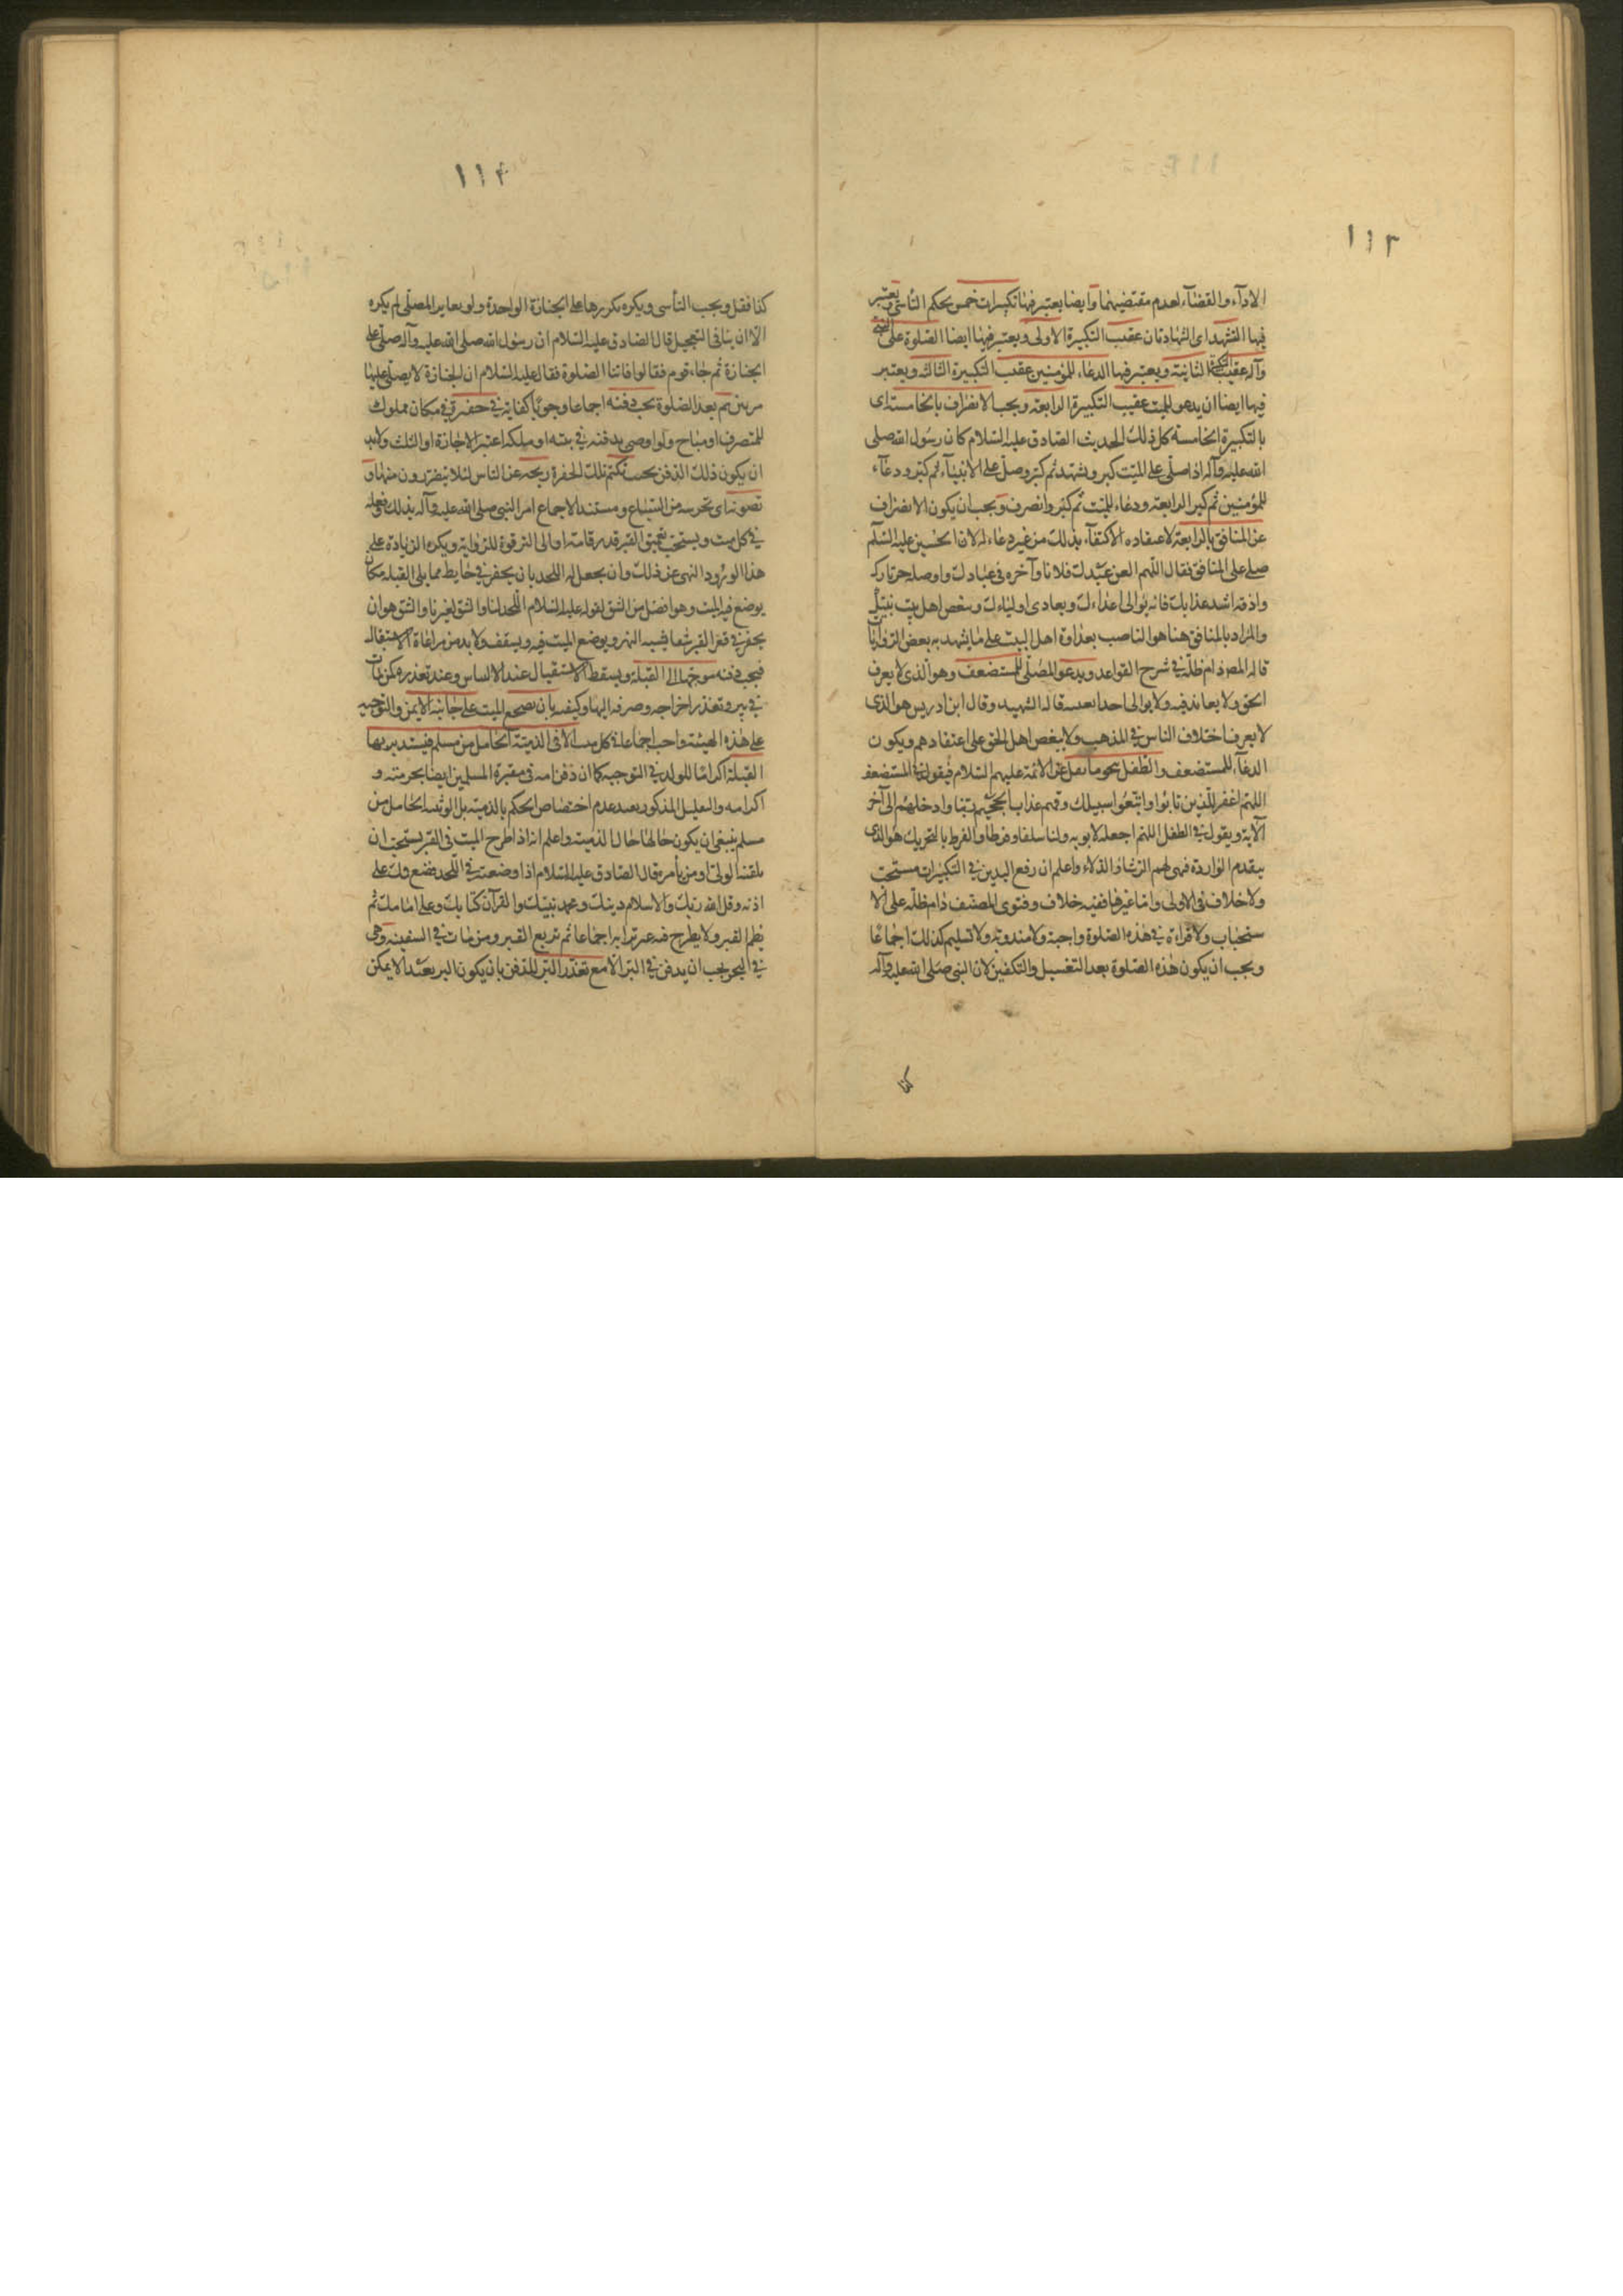 ١١٣
الاداء والقضاء لعدم مقتضيهما وايضا يعتبر فيها تكبيرات خمس بحكم التأسى ويعتبر
فيها التشهد اى الشهادتان عقيب التكبيرة الاولى ويعتبر فيها ايضا الصلوة على النبى
وآله عقيب التكبيرة الثانية ويعتبر فيها الدعاء للمؤمنين عقيب التكبيرة الثالثة ويعتبر
فيها ايضا ان يدعو للميت عقيب التكبيرة الرابعة ويجب الانصراف بالخامسة اى
بالتكبيرة الخامسة كل ذلك لحديث الصادق عليه السلام كان رسول الله صلى
الله عليه وآله اذا صلى على الميت كبر وتشهد ثم كبر وصلى على الانبياء ثم كبر ودعاء
للمؤمنين ثم كبر الرابعة ودعاء للميت ثم كبر وانصرف ويجب ان يكون الانصراف
عن المنافق بالرابعة لاعتقاده الاكتفاء بذلك من غير دعاء له لان الحسين عليه السلم
صلى على المنافق فقال اللهم العن عبدك فلانا وآخره فى عبادك واوصله حر نارك
واذقه اشد عذابك فانه يوالى اعداءك ويعادى اولياءك ويبغض اهل بيت نبيك
والمراد بالمنافق هنا هو الناصب بعداوة اهل البيت على ما يشهد به بعض الروايات
قاله المصـ دام ظله فى شرح القواعد ويدعو المصلى للمستضعف وهو الذى لا يعرف
الحق ولا يعاند فيه ولا يوالى احدا بعينه قاله الشهيد وقال ابن ادريس هو الذى
لا يعرف اختلاف الناس فى المذهب ولا يبغض اهل الحق على اعتقادهم ويكون
الدعاء للمستضعف والطفل بنحو ما نقل عن الائمة عليهم السلام فيقول فى المستضعف
اللهم اغفر للذين تابوا واتبعوا سبيلك وقهم عذاب الجحيم ربنا وادخلهم الى آخر
الآية ويقول فى الطفل اللهم اجعله لابويه ولنا سلفا وفرطا والفرط بالتحريك هو الذى
يتقدم الواردة فهيئ لهم الرشاء والدلاء واعلم ان رفع اليدين فى التكبيرات مستحب
ولا خلاف فى الاولى واما غيرها ففيه خلاف وفتوى المصنف دام ظله على الا
ستحباب ولا قراءة فى هذه الصلوة واجبة ولا مندوبة ولا تسليم كذلك اجماعا
ويجب ان يكون هذه الصلوة بعد التغسيل والتكفين لان النبى صلى الله عليه وآله
كذا
١١٤
كذا فعل ويجب التأسى ويكره تكريرها على الجنازة الواحدة ولو تغاير المصلى لم يكره
الا ان ينافى التعجيل قال الصادق عليه السلام ان رسول الله صلى الله عليه وآله صلى على
الجنازة ثم جاء قوم فقالوا فاتتنا الصلوة فقال عليه السلام ان الجنازة لا يصلى عليها
مرتين ثم بعد الصلوة يجب دفنه اجماعا وجوبا كفاية فى حفرة فى مكان مملوك
للمتصرف او مباح ولو اوصى بدفنه فى بيته او ملكه اعتبر الاجازة او الثلث ولابد
ان يكون ذلك الدفن بحيث تكتم تلك الحفرة ريحه عن الناس لئلا يتضررون منها و
تصونه اى تحرسه من السباع ومستند الاجماع امر النبى صلى الله عليه وآله بذلك وفعله
فى كل ميت ويستحب تعميق القبر قدر قامة او الى الترقوة للرواية ويكره الزيادة على
هذا لورود النهى عن ذلك وان يجعل له اللحد بان يحفر فى حايط مما يلى القبلة مكان
يوضع فيه الميت وهو افضل من الشق لقوله عليه السلام اللحد لنا والشق لغيرنا والشق هو ان
يحفر فى قعر القبر شقا يشبه النهر ويوضع الميت فيه ويسقف ولابد من مراعاة الاستقبال
فيجب دفنه موجها الى القبلة ويسقط الاستقبال عند الالتباس وعند تعذره كمن مات
فى بير وتعذر اخراجه وصرفه اليها وكيفيته بان يضجع الميت على جانبه الايمن والتوجيه
على هذه الهيئة واجب اجماعا فى كل ميت الا فى الذمية الحامل من مسلم فيستدبر بها
القبلة اكراما للولد فى التوجيه كما ان دفن امه فى مقبرة المسلمين ايضا لحرمته و
اكرامه والتعليل المذكور يفيد عدم اختصاص الحكم بالذمية بل الوثنية الحامل من
مسلم ينبغى ان يكون حالها حال الذمية واعلم انه اذا طرح الميت فى القبر يستحب ان
يلقنه الولى او من يأمره قال الصادق عليه السلام اذا وضعته فى اللحد فضع فك على
اذنه وقل الله ربك والاسلام دينك ومحمد نبيك والقرآن كتابك وعلى امامك ثم
يطم القبر ولا يطرح فيه غير ترابه اجماعا ثم تربع القبر ومن مات فى السفينة وهى
فى البحر يجب ان يدفن فى البر الا مع تعذر البر للدفن بان يكون البر بعيدا لا يمكن